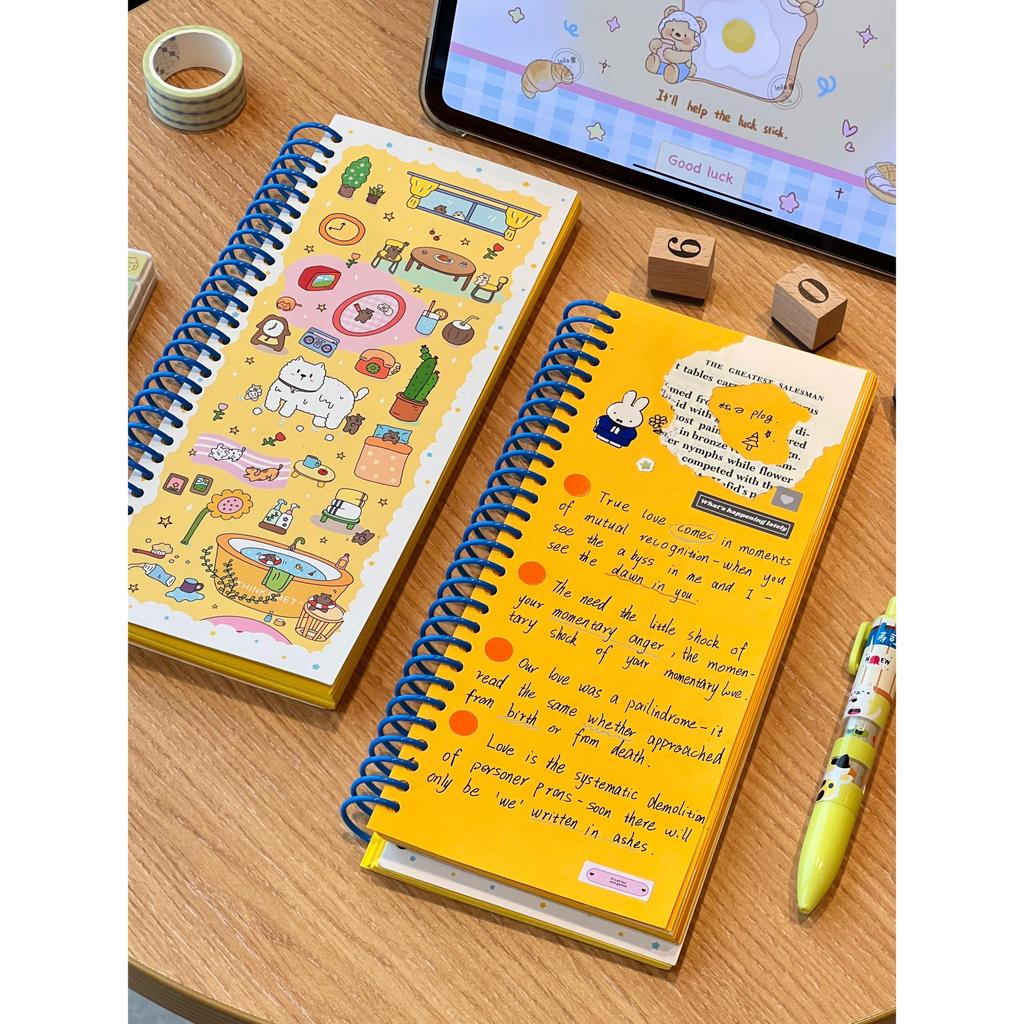 It'll help the luck stick.
Good luck
6
0
THE GREATEST SALESMAN
t tables
Plog.
in bronze
er nymphs while flower
competed with
What's happening lately
True love comes in moments
of mutual recognition-when you
see the abyss in me and I -
see the dawn in you.
The need the little shock of
your momentary anger, the momen-
tary shock of your momentary love.
Our love was a pailindrome-it
read the same whether approached
from birth or from death.
Love is the systematic demolition
of personer prons-soon there will
only be 'we' written in ashes.